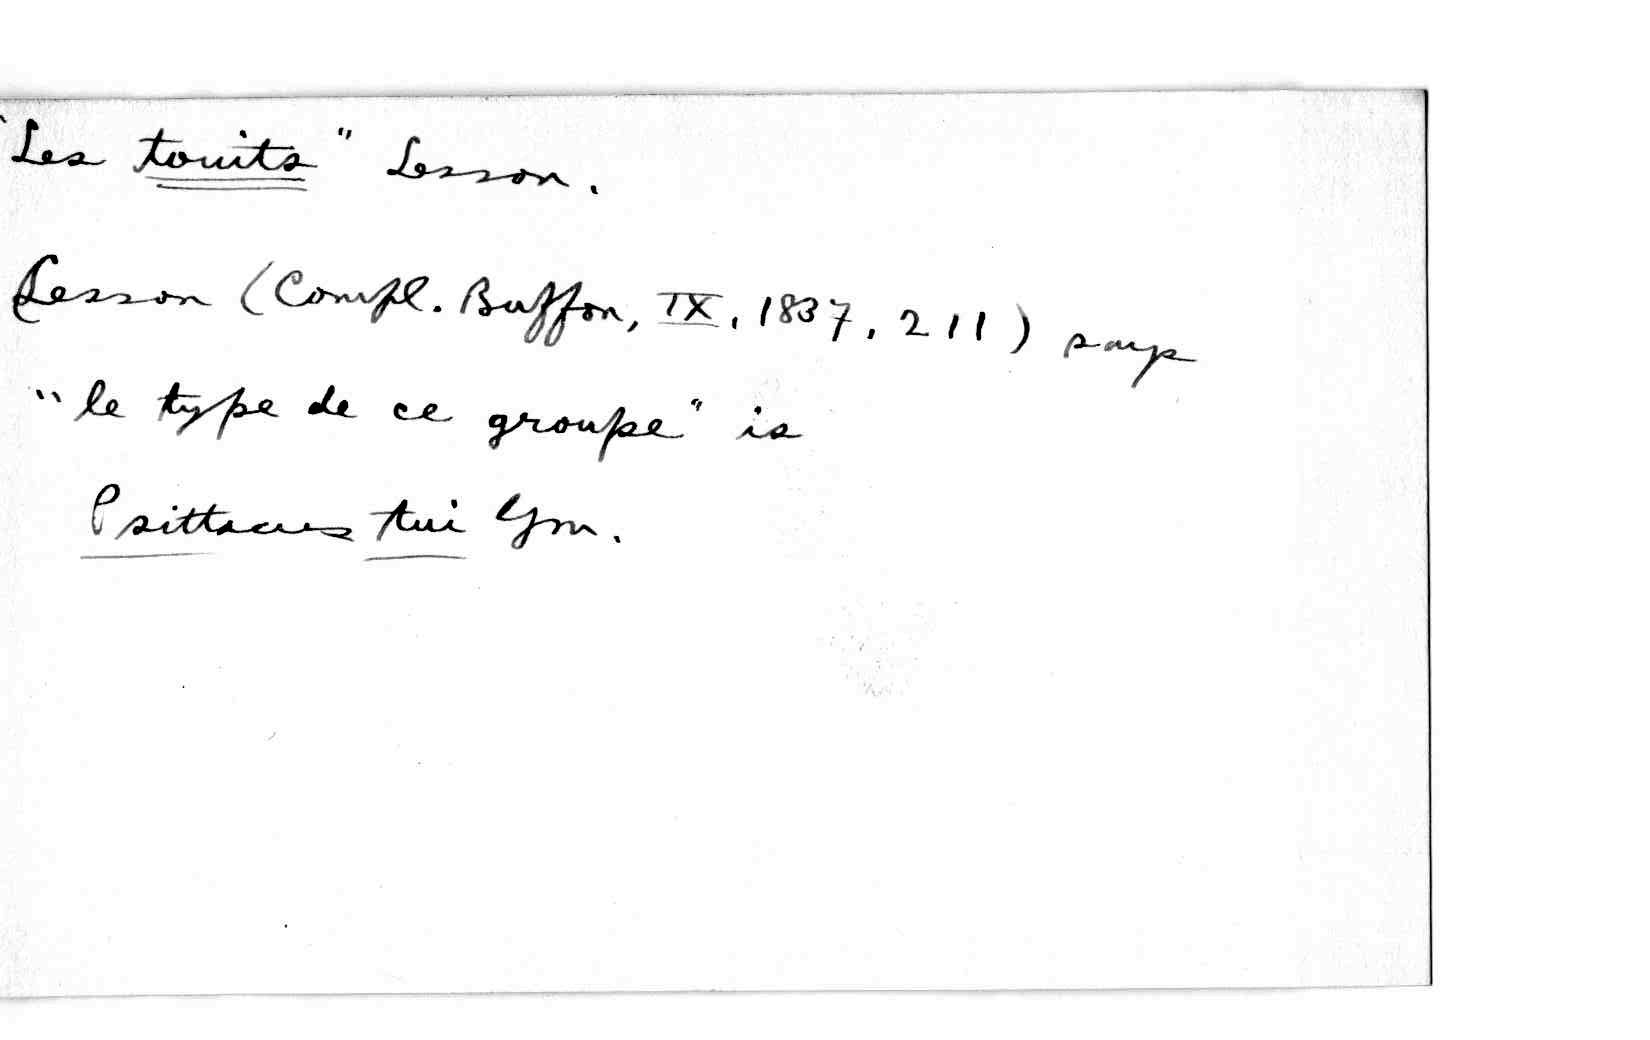 "Les touits" Lesson.
Lesson (Compl. Buffon, IX, 1837, 211) says
"le type de ce groupe" is
Psittacus tui Gm.